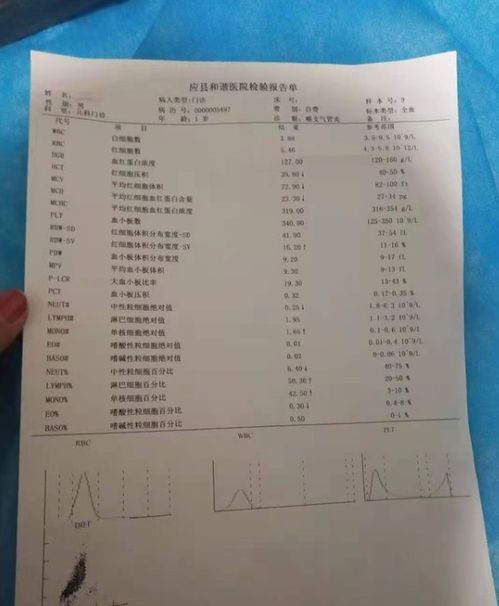 应县和谐医院检验报告单
姓 名:
病人类型:门诊 床 号: 样 本 号: 9
性 别: 男 病 历 号: 0000005497 费 别: 自费 标本类型: 全血
科 室: 儿科门诊 年 龄: 1 岁 诊 断: 喘支气管炎 备 注:
代号 项 目 结 果 参考范围
WBC 白细胞数 3.5-9.5 10^9/L
RBC 红细胞数 5.46 4.3-5.8 10^12/L
HGB 血红蛋白浓度 127.00 120-160 g/L
HCT 红细胞压积 39.80↓ 40-50 %
MCV 平均红细胞体积 72.90↓ 82-100 fL
MCH 平均红细胞血红蛋白含量 23.30↓ 27-34 pg
MCHC 平均红细胞血红蛋白浓度 319.00 316-354 g/L
PLT 血小板数 340.00 125-350 10^9/L
RDW-SD 红细胞体积分布宽度-SD 41.90 37-54 fl
RDW-SV 红细胞体积分布宽度-SV 16.20↑ 11-16 %
PDW 血小板体积分布宽度 9.20 9-17 fl
MPV 平均血小板体积 9.30 9-13 fl
P-LCR 大血小板比率 19.30 13-43 %
PCT 血小板压积 0.32 0.17-0.35 %
NEUT# 中性粒细胞绝对值 0.25↓ 1.8-6.3 10^9/L
LYMPH# 淋巴细胞绝对值 1.95 1.1-3.2 10^9/L
MONO# 单核细胞绝对值 1.65↑ 0.1-0.6 10^9/L
EO# 嗜酸性粒细胞绝对值 0.01 0.01-0.4 10^9/L
BASO# 嗜碱性粒细胞绝对值 0.02 0-0.06 10^9/L
NEUT% 中性粒细胞百分比 6.40↓ 40-75 %
LYMPH% 淋巴细胞百分比 50.30↑ 20-50 %
MONO% 单核细胞百分比 42.50↑ 3-10 %
EO% 嗜酸性粒细胞百分比 0.30↓ 0.4-8 %
BASO% 嗜碱性粒细胞百分比 0.50 0-1 %
RBC WBC PLT
DIFF